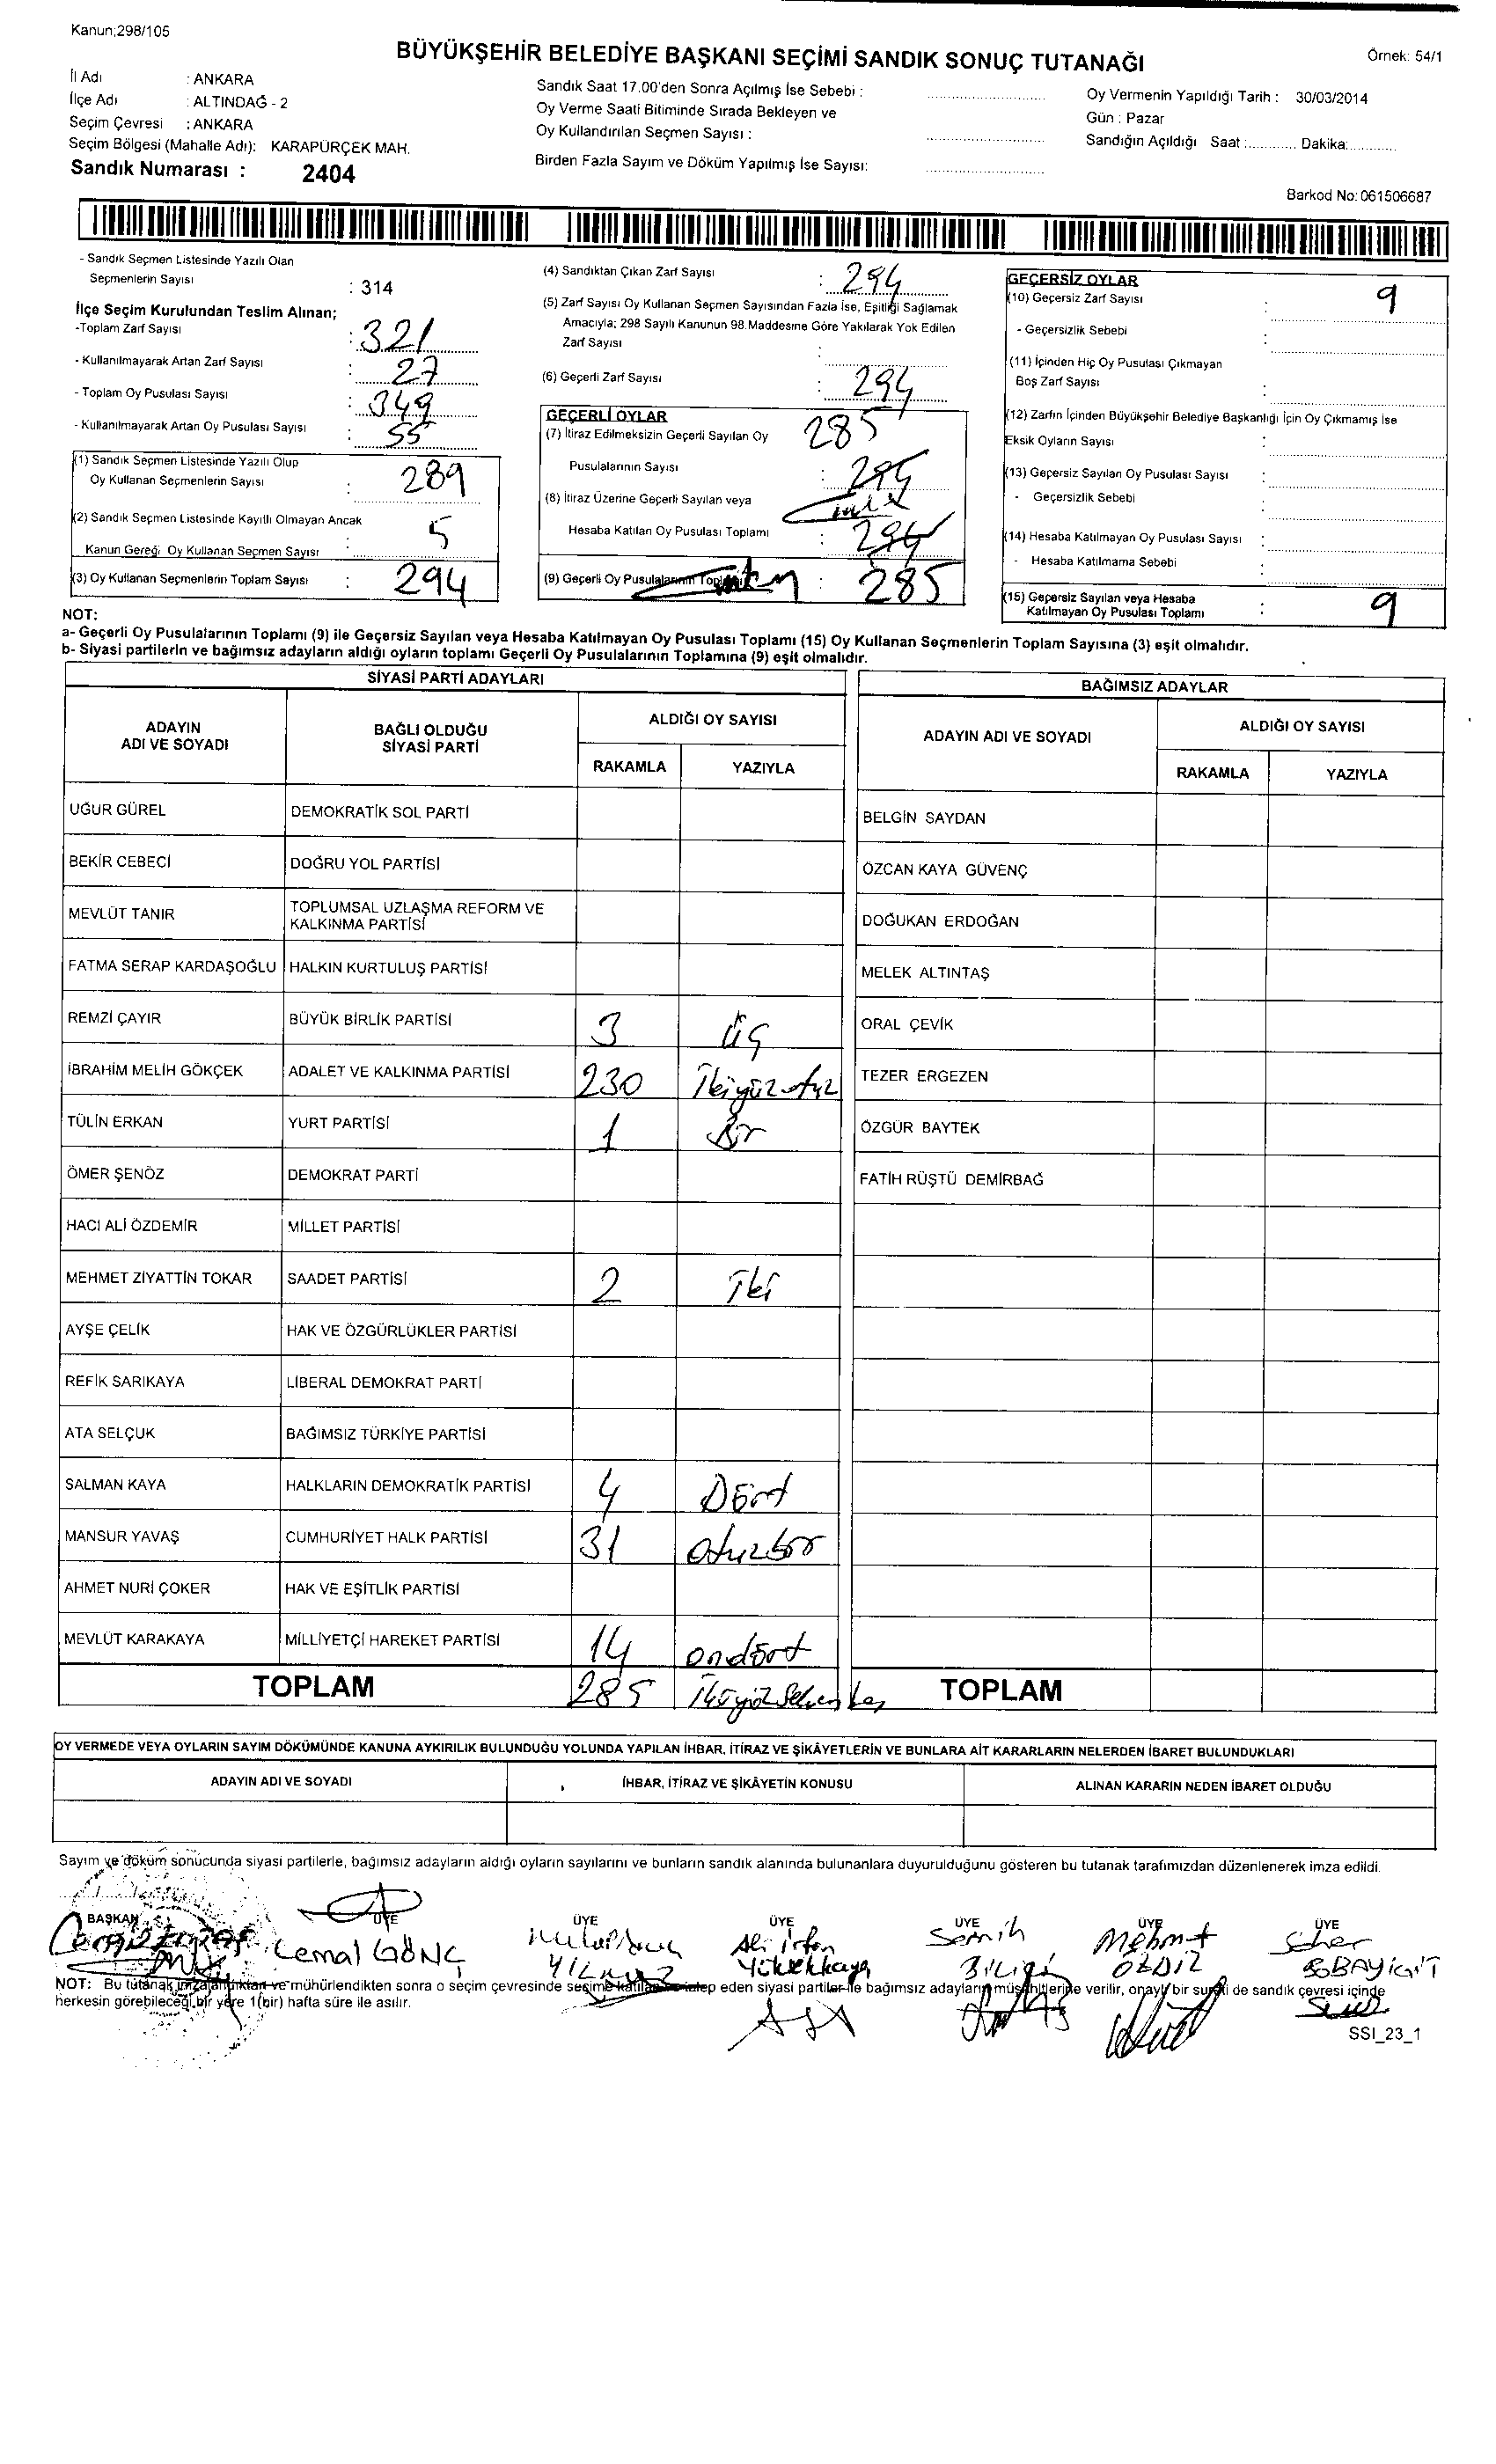 Kanun;298/105
BÜYÜKŞEHİR BELEDİYE BAŞKANI SEÇİMİ SANDIK SONUÇ TUTANAĞI
Örnek: 54/1
İl Adı : ANKARA
İlçe Adı : ALTINDAĞ - 2
Seçim Çevresi : ANKARA
Seçim Bölgesi (Mahalle Adı): KARAPÜRÇEK MAH.
Sandık Numarası : 2404
Sandık Saat 17.00'den Sonra Açılmış İse Sebebi :
Oy Verme Saati Bitiminde Sırada Bekleyen ve
Oy Kullandırılan Seçmen Sayısı :
Birden Fazla Sayım ve Döküm Yapılmış İse Sayısı:
Oy Vermenin Yapıldığı Tarih : 30/03/2014
Gün : Pazar
Sandığın Açıldığı Saat :............ Dakika:............
Barkod No: 061506687
- Sandık Seçmen Listesinde Yazılı Olan
Seçmenlerin Sayısı : 314
İlçe Seçim Kurulundan Teslim Alınan;
-Toplam Zarf Sayısı : 321
- Kullanılmayarak Artan Zarf Sayısı : 27
- Toplam Oy Pusulası Sayısı : 349
- Kullanılmayarak Artan Oy Pusulası Sayısı : 55
(1) Sandık Seçmen Listesinde Yazılı Olup
Oy Kullanan Seçmenlerin Sayısı : 289
(2) Sandık Seçmen Listesinde Kayıtlı Olmayan Ancak
Kanun Gereği Oy Kullanan Seçmen Sayısı : 5
(3) Oy Kullanan Seçmenlerin Toplam Sayısı : 294
(4) Sandıktan Çıkan Zarf Sayısı : 294
(5) Zarf Sayısı Oy Kullanan Seçmen Sayısından Fazla İse, Eşitliği Sağlamak
Amacıyla; 298 Sayılı Kanunun 98.Maddesine Göre Yakılarak Yok Edilen
Zarf Sayısı :
(6) Geçerli Zarf Sayısı : 294
GEÇERLİ OYLAR
(7) İtiraz Edilmeksizin Geçerli Sayılan Oy 285
Pusulalarının Sayısı : 294
(8) İtiraz Üzerine Geçerli Sayılan veya
Hesaba Katılan Oy Pusulası Toplamı : 294
(9) Geçerli Oy Pusulalarının Toplamı : 285
GEÇERSİZ OYLAR
(10) Geçersiz Zarf Sayısı : 9
- Geçersizlik Sebebi :
(11) İçinden Hiç Oy Pusulası Çıkmayan
Boş Zarf Sayısı :
(12) Zarfın İçinden Büyükşehir Belediye Başkanlığı İçin Oy Çıkmamış İse
Eksik Oyların Sayısı :
(13) Geçersiz Sayılan Oy Pusulası Sayısı :
- Geçersizlik Sebebi :
(14) Hesaba Katılmayan Oy Pusulası Sayısı :
- Hesaba Katılmama Sebebi :
(15) Geçersiz Sayılan veya Hesaba
Katılmayan Oy Pusulası Toplamı : 9
NOT:
a- Geçerli Oy Pusulalarının Toplamı (9) ile Geçersiz Sayılan veya Hesaba Katılmayan Oy Pusulası Toplamı (15) Oy Kullanan Seçmenlerin Toplam Sayısına (3) eşit olmalıdır.
b- Siyasi partilerin ve bağımsız adayların aldığı oyların toplamı Geçerli Oy Pusulalarının Toplamına (9) eşit olmalıdır.
SİYASİ PARTİ ADAYLARI
BAĞIMSIZ ADAYLAR
ADAYIN ADI VE SOYADI
BAĞLI OLDUĞU SİYASİ PARTİ
ALDIĞI OY SAYISI
RAKAMLA YAZIYLA
ADAYIN ADI VE SOYADI
ALDIĞI OY SAYISI
RAKAMLA YAZIYLA
UĞUR GÜREL DEMOKRATİK SOL PARTİ BELGİN SAYDAN
BEKİR CEBECİ DOĞRU YOL PARTİSİ ÖZCAN KAYA GÜVENÇ
MEVLÜT TANIR TOPLUMSAL UZLAŞMA REFORM VE KALKINMA PARTİSİ DOĞUKAN ERDOĞAN
FATMA SERAP KARDAŞOĞLU HALKIN KURTULUŞ PARTİSİ MELEK ALTINTAŞ
REMZİ ÇAYIR BÜYÜK BİRLİK PARTİSİ 3 üç ORAL ÇEVİK
İBRAHİM MELİH GÖKÇEK ADALET VE KALKINMA PARTİSİ 230 İkiyüzotuz TEZER ERGEZEN
TÜLİN ERKAN YURT PARTİSİ 1 Bir ÖZGÜR BAYTEK
ÖMER ŞENÖZ DEMOKRAT PARTİ FATİH RÜŞTÜ DEMİRBAĞ
HACI ALİ ÖZDEMİR MİLLET PARTİSİ
MEHMET ZİYATTİN TOKAR SAADET PARTİSİ 2 İki
AYŞE ÇELİK HAK VE ÖZGÜRLÜKLER PARTİSİ
REFİK SARIKAYA LİBERAL DEMOKRAT PARTİ
ATA SELÇUK BAĞIMSIZ TÜRKİYE PARTİSİ
SALMAN KAYA HALKLARIN DEMOKRATİK PARTİSİ 4 Dört
MANSUR YAVAŞ CUMHURİYET HALK PARTİSİ 31 otuzbir
AHMET NURİ ÇOKER HAK VE EŞİTLİK PARTİSİ
MEVLÜT KARAKAYA MİLLİYETÇİ HAREKET PARTİSİ 14 ondört
TOPLAM 285 İkiyüzseksenbeş TOPLAM
OY VERMEDE VEYA OYLARIN SAYIM DÖKÜMÜNDE KANUNA AYKIRILIK BULUNDUĞU YOLUNDA YAPILAN İHBAR, İTİRAZ VE ŞİKÂYETLERİN VE BUNLARA AİT KARARLARIN NELERDEN İBARET BULUNDUKLARI
ADAYIN ADI VE SOYADI İHBAR, İTİRAZ VE ŞİKÂYETİN KONUSU ALINAN KARARIN NEDEN İBARET OLDUĞU
Sayım ve döküm sonucunda siyasi partilerle, bağımsız adayların aldığı oyların sayılarını ve bunların sandık alanında bulunanlara duyurulduğunu gösteren bu tutanak tarafımızdan düzenlenerek imza edildi.
BAŞKAN ÜYE ÜYE ÜYE ÜYE ÜYE ÜYE
Cemal GÖNÇ
YILMAZ
Ali İrfan Yükekkaya
Semih BİLİGİ
Mehmet ÖZDİZ
Seher
NOT: Bu tutanak imzalandıktan ve mühürlendikten sonra o seçim çevresinde seçime katılan ve talep eden siyasi partiler ile bağımsız adayların müşahitlerine verilir, onaylı bir sureti de sandık çevresi içinde
herkesin görebileceği bir yere 1(bir) hafta süre ile asılır.
SSI_23_1